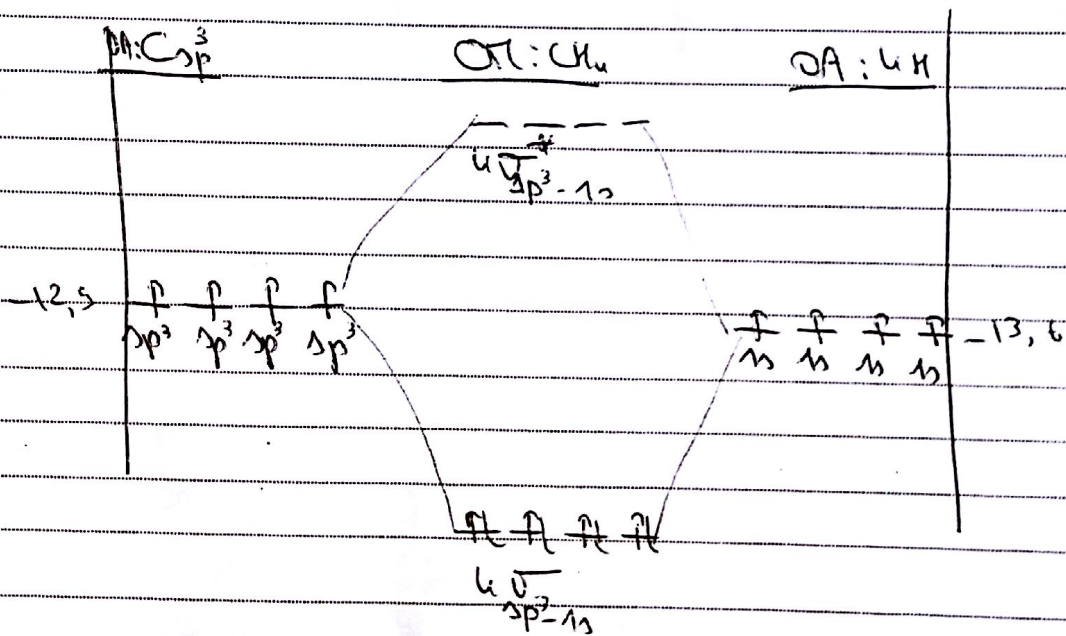 OA:Csp³ OM:CH₄ OA:4H
4σ*sp³-1s
-12,5
sp³ sp³ sp³ sp³
-13,6
1s 1s 1s 1s
4σsp³-1s